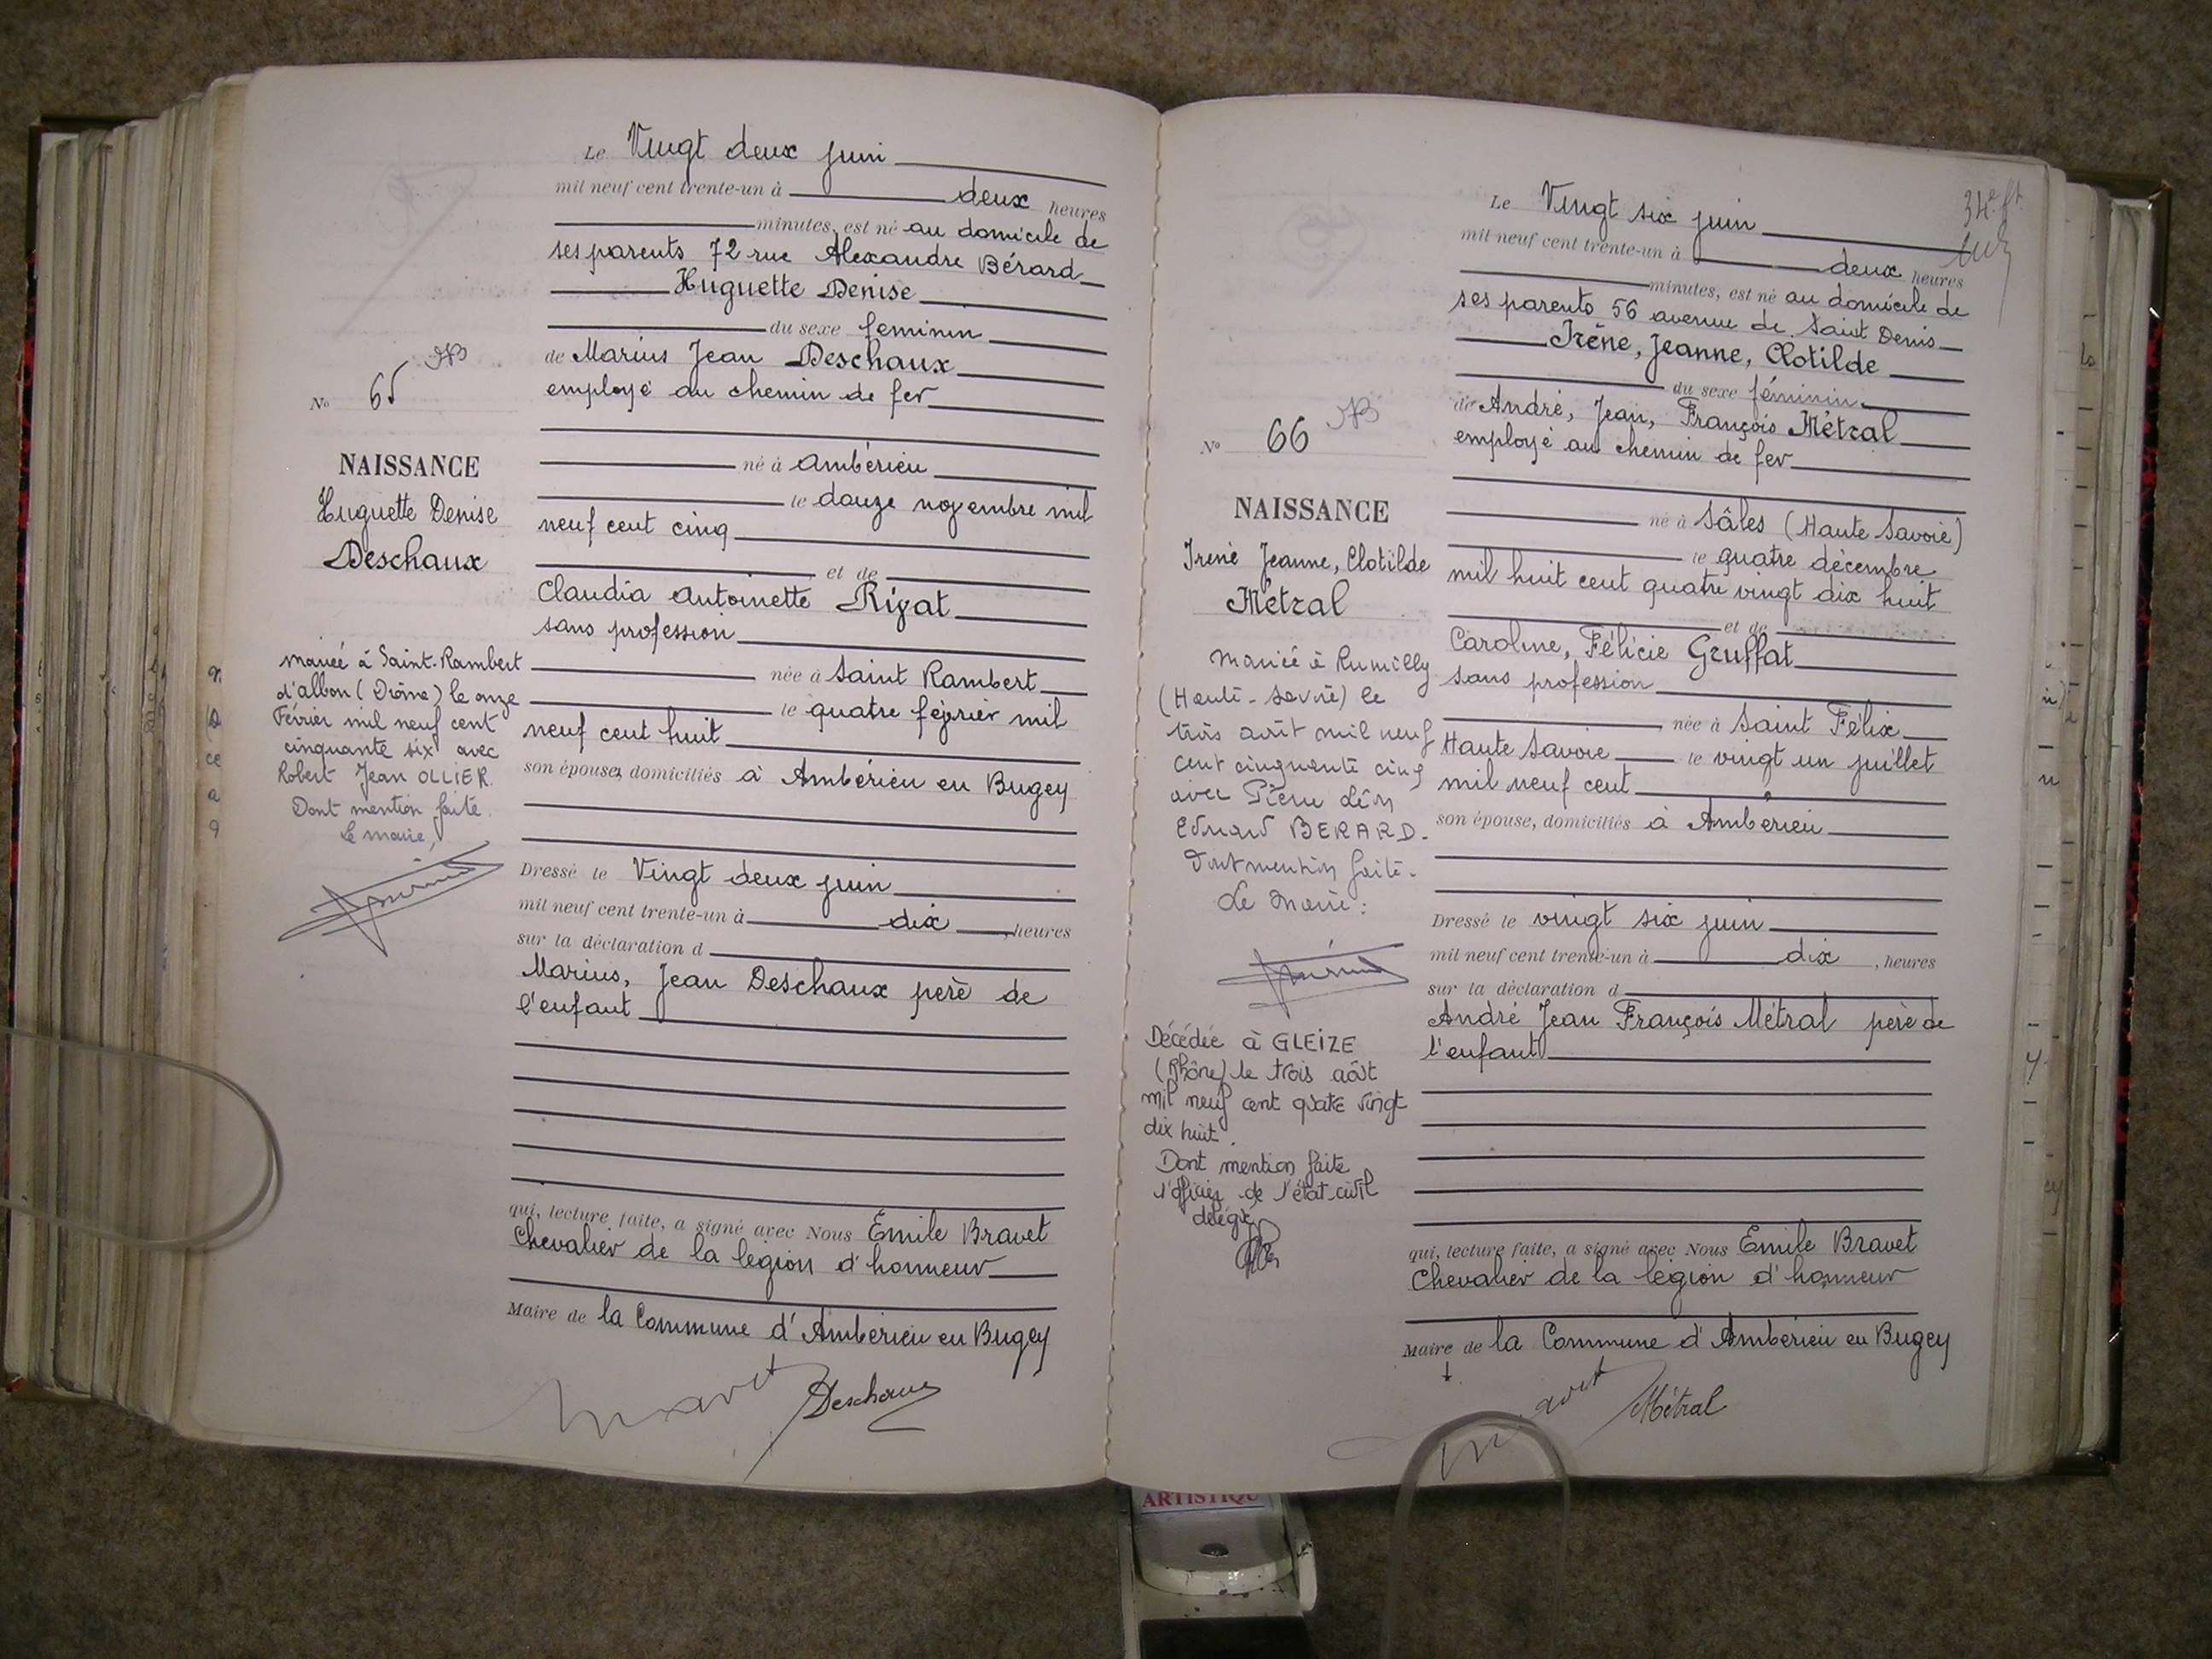 Le Vingt deux juin
mil neuf cent trente-un à deux heures
minutes, est né au domicile de
ses parents 72 rue Alexandre Bérard
Huguette Denise
du sexe feminin
de Marius Jean Deschaux
employé au chemin de fer
né à Ambérieu
le douze novembre mil
neuf cent cinq
et de
Claudia Antoinette Rigat
sans profession
née à Saint Rambert
le quatre février mil
neuf cent huit
son épouse, domiciliés à Ambérieu en Bugey
Dressé le Vingt deux juin
mil neuf cent trente-un à dix, heures
sur la déclaration d
Marius, Jean Deschaux père de
l'enfant
qui, lecture faite, a signé avec Nous Émile Bravet
Chevalier de la légion d'honneur
Maire de la Commune d'Ambérieu en Bugey
Bravet Deschaux
No 65
NAISSANCE
Huguette Denise
Deschaux
mariée à Saint-Rambert
d'albon (Drôme) le onze
Février mil neuf cent
cinquante six avec
Robert Jean OLLIER.
Dont mention faite.
Le maire,
34e ft
Le Vingt six juin
mil neuf cent trente-un à deux heures
minutes, est né au domicile de
ses parents 56 avenue de Saint Denis
Irène, Jeanne, Clotilde
du sexe féminin
de André, Jean, François Métral
employé au chemin de fer
né à Sâles (Haute Savoie)
le quatre décembre
mil huit cent quatre vingt dix huit
et de
Caroline, Félicie Gruffat
sans profession
née à Saint Félix
Haute Savoie le vingt un juillet
mil neuf cent
son épouse, domiciliés à Ambérieu
Dressé le vingt six juin
mil neuf cent trente-un à dix, heures
sur la déclaration d
André Jean François Métral père de
l'enfant
qui, lecture faite, a signé avec Nous Emile Bravet
Chevalier de la légion d'honneur
Maire de la Commune d'Ambérieu en Bugey
Bravet Métral
No 66
NAISSANCE
Irène Jeanne, Clotilde
Métral
Mariée à Rumilly
(Haute-Savoie) le
trois août mil neuf
cent cinquante cinq
avec Pierre Léon
Edouard BERARD.
Dont mention faite.
Le Maire:
Décédée à GLEIZE
(Rhône) le trois août
mil neuf cent quatre vingt
dix huit.
Dont mention faite
l'officier de l'état civil
délégué
ARTISTIQU